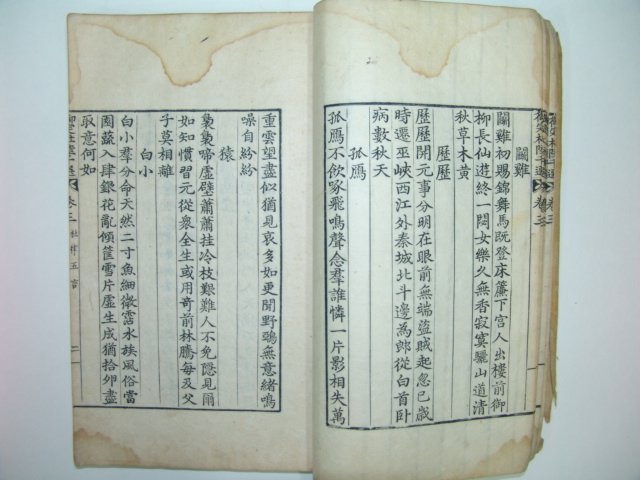 鬬雞
鬬雞初賜錦舞馬既登床簾下宫人出樓前御
柳長仙遊終一閟女樂久無香寂寞驪山道清
秋草木黄
歷歷
歷歷開元事分明在眼前無端盜賊起忽已歳
時遷巫峽西江外秦城北斗邊為郎從白首卧
病數秋天
孤鴈
孤鴈不飲啄飛鳴聲念羣誰憐一片影相失萬
重雲望盡似猶見哀多如更聞野鵶無意緒鳴
噪自紛紛
猿
裊裊啼虛壁蕭蕭挂冷枝艱難人不免隱見爾
如知慣習元從衆全生或用奇前林騰每及父
子莫相離
白小
白小羣分命天然二寸魚細微霑水族風俗當
園蔬入肆銀花亂傾筐雪片虛生成猶拾卵盡
取意何如
卷三 杜律五言 二